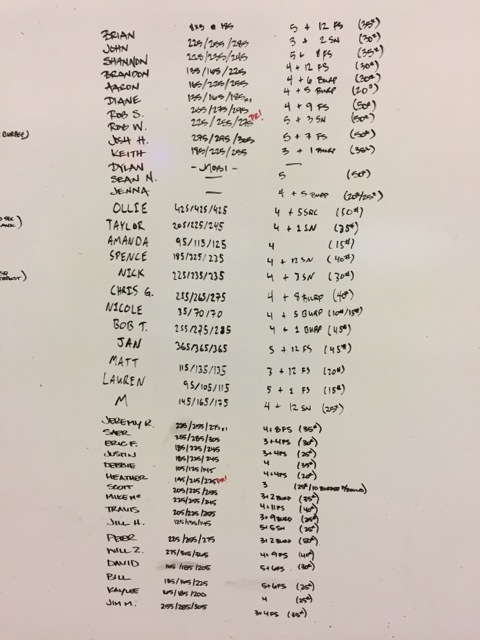 BRIAN 5 + 12 FS (35#)
JOHN 225/255/285 3 + 2 SN (30#)
SHANNON 225/235/245 5 + 8 FS (35#)
BRANDON 135/165/225 4 + 12 FS (30#)
AARON 165/225/255 4 + 6 BURP (30#)
DIANE 4 + 5 BURP (20#)
ROB S. 255/275/295 4 + 9 FS (50#)
ROB W. 225/255/275 PR! 5 + 3 SN (50#)
JOSH H. 275/295/305 5 + 7 FS (50#)
KEITH 185/225/255 3 + 1 BURP (35#)
DYLAN - MOBI - —
SEAN N. 5 (50#)
JENNA — 4 + 5 BURP (20#/25#)
OLLIE 425/425/425 4 + 5SRC (50#)
TAYLOR 205/225/245 4 + 2 SN (35#)
AMANDA 95/115/125 4 (15#)
SPENCE 185/225/235 4 + 12 SN (40#)
NICK 225/235/235 4 + 3 SN (30#)
CHRIS G. 255/265/275 4 + 8 BURP (40#)
NICOLE 35/70/70 4 + 5 BURP (10#/15#)
BOB T. 255/275/285 4 + 1 BURP (45#)
JAN 365/365/365 5 + 12 FS (45#)
MATT 115/135/135 3 + 12 FS (20#)
LAUREN 95/105/115 5 + 1 FS (15#)
M 145/165/175 4 + 12 SN (25#)
JEREMY R. 4+8FS (35#)
SAER 255/285/305 3+4FS (30#)
ERIC F. 185/225/245 3+4FS (25#)
JUSTIN 185/225/245 4 (35#)
DEBBIE 105/125/145 4+4FS (20#)
HEATHER 195/215/225 PR! 3
SCOTT 205/225/255 3+2 BURP (35#)
MIKE MC 225/235/245 4+11FS (40#)
TRAVIS 205/225/255 3+9 BURP (25#)
JILL H. 125/135/145 3+5SN (25#)
PETER 225/255/275 3+2 BURP (50#)
WILL Z. 275/305/305 4+9FS (40#)
DAVID 165/185/205 5+6FS (30#)
BILL 185/195/225 5+6FS (25#)
KAYLEE 165/185/200 4 (25#)
JIM M. 255/285/305 3+4FS (35#)